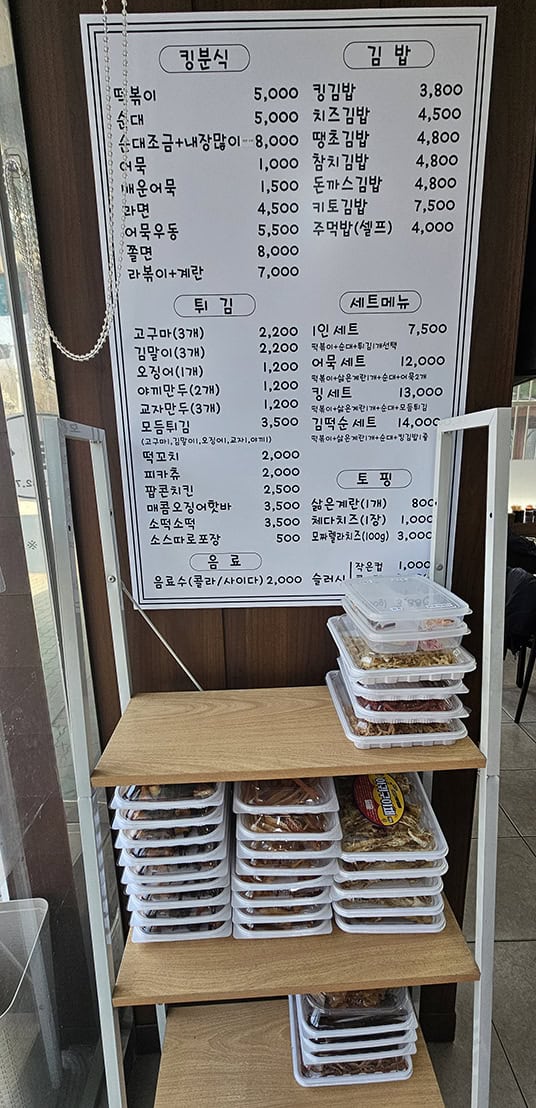 킹분식
떡볶이 5,000
순대 5,000
순대조금+내장많이 8,000
어묵 1,000
매운어묵 1,500
라면 4,500
어묵우동 5,500
쫄면 8,000
라볶이+계란 7,000
김밥
킹김밥 3,800
치즈김밥 4,500
땡초김밥 4,800
참치김밥 4,800
돈까스김밥 4,800
키토김밥 7,500
주먹밥(셀프) 4,000
튀김
고구마(3개) 2,200
김말이(3개) 2,200
오징어(1개) 1,200
야끼만두(2개) 1,200
교자만두(3개) 1,200
모듬튀김 3,500
(고구마1,김말이1,오징어1,교자1,야끼1)
떡꼬치 2,000
피카츄 2,000
팝콘치킨 2,500
매콤오징어핫바 3,500
소떡소떡 3,500
소스따로포장 500
세트메뉴
1인 세트 7,500
떡볶이+순대+튀김1개선택
어묵 세트 12,000
떡볶이+삶은계란1개+순대+어묵2개
킹 세트 13,000
떡볶이+삶은계란1개+순대+모듬튀김
김떡순 세트 14,000
떡볶이+삶은계란1개+순대+킹김밥1줄
토핑
삶은계란(1개) 800
체다치즈(1장) 1,000
모짜렐라치즈(100g) 3,000
음료
음료수(콜라/사이다) 2,000
슬러시
작은컵 1,000